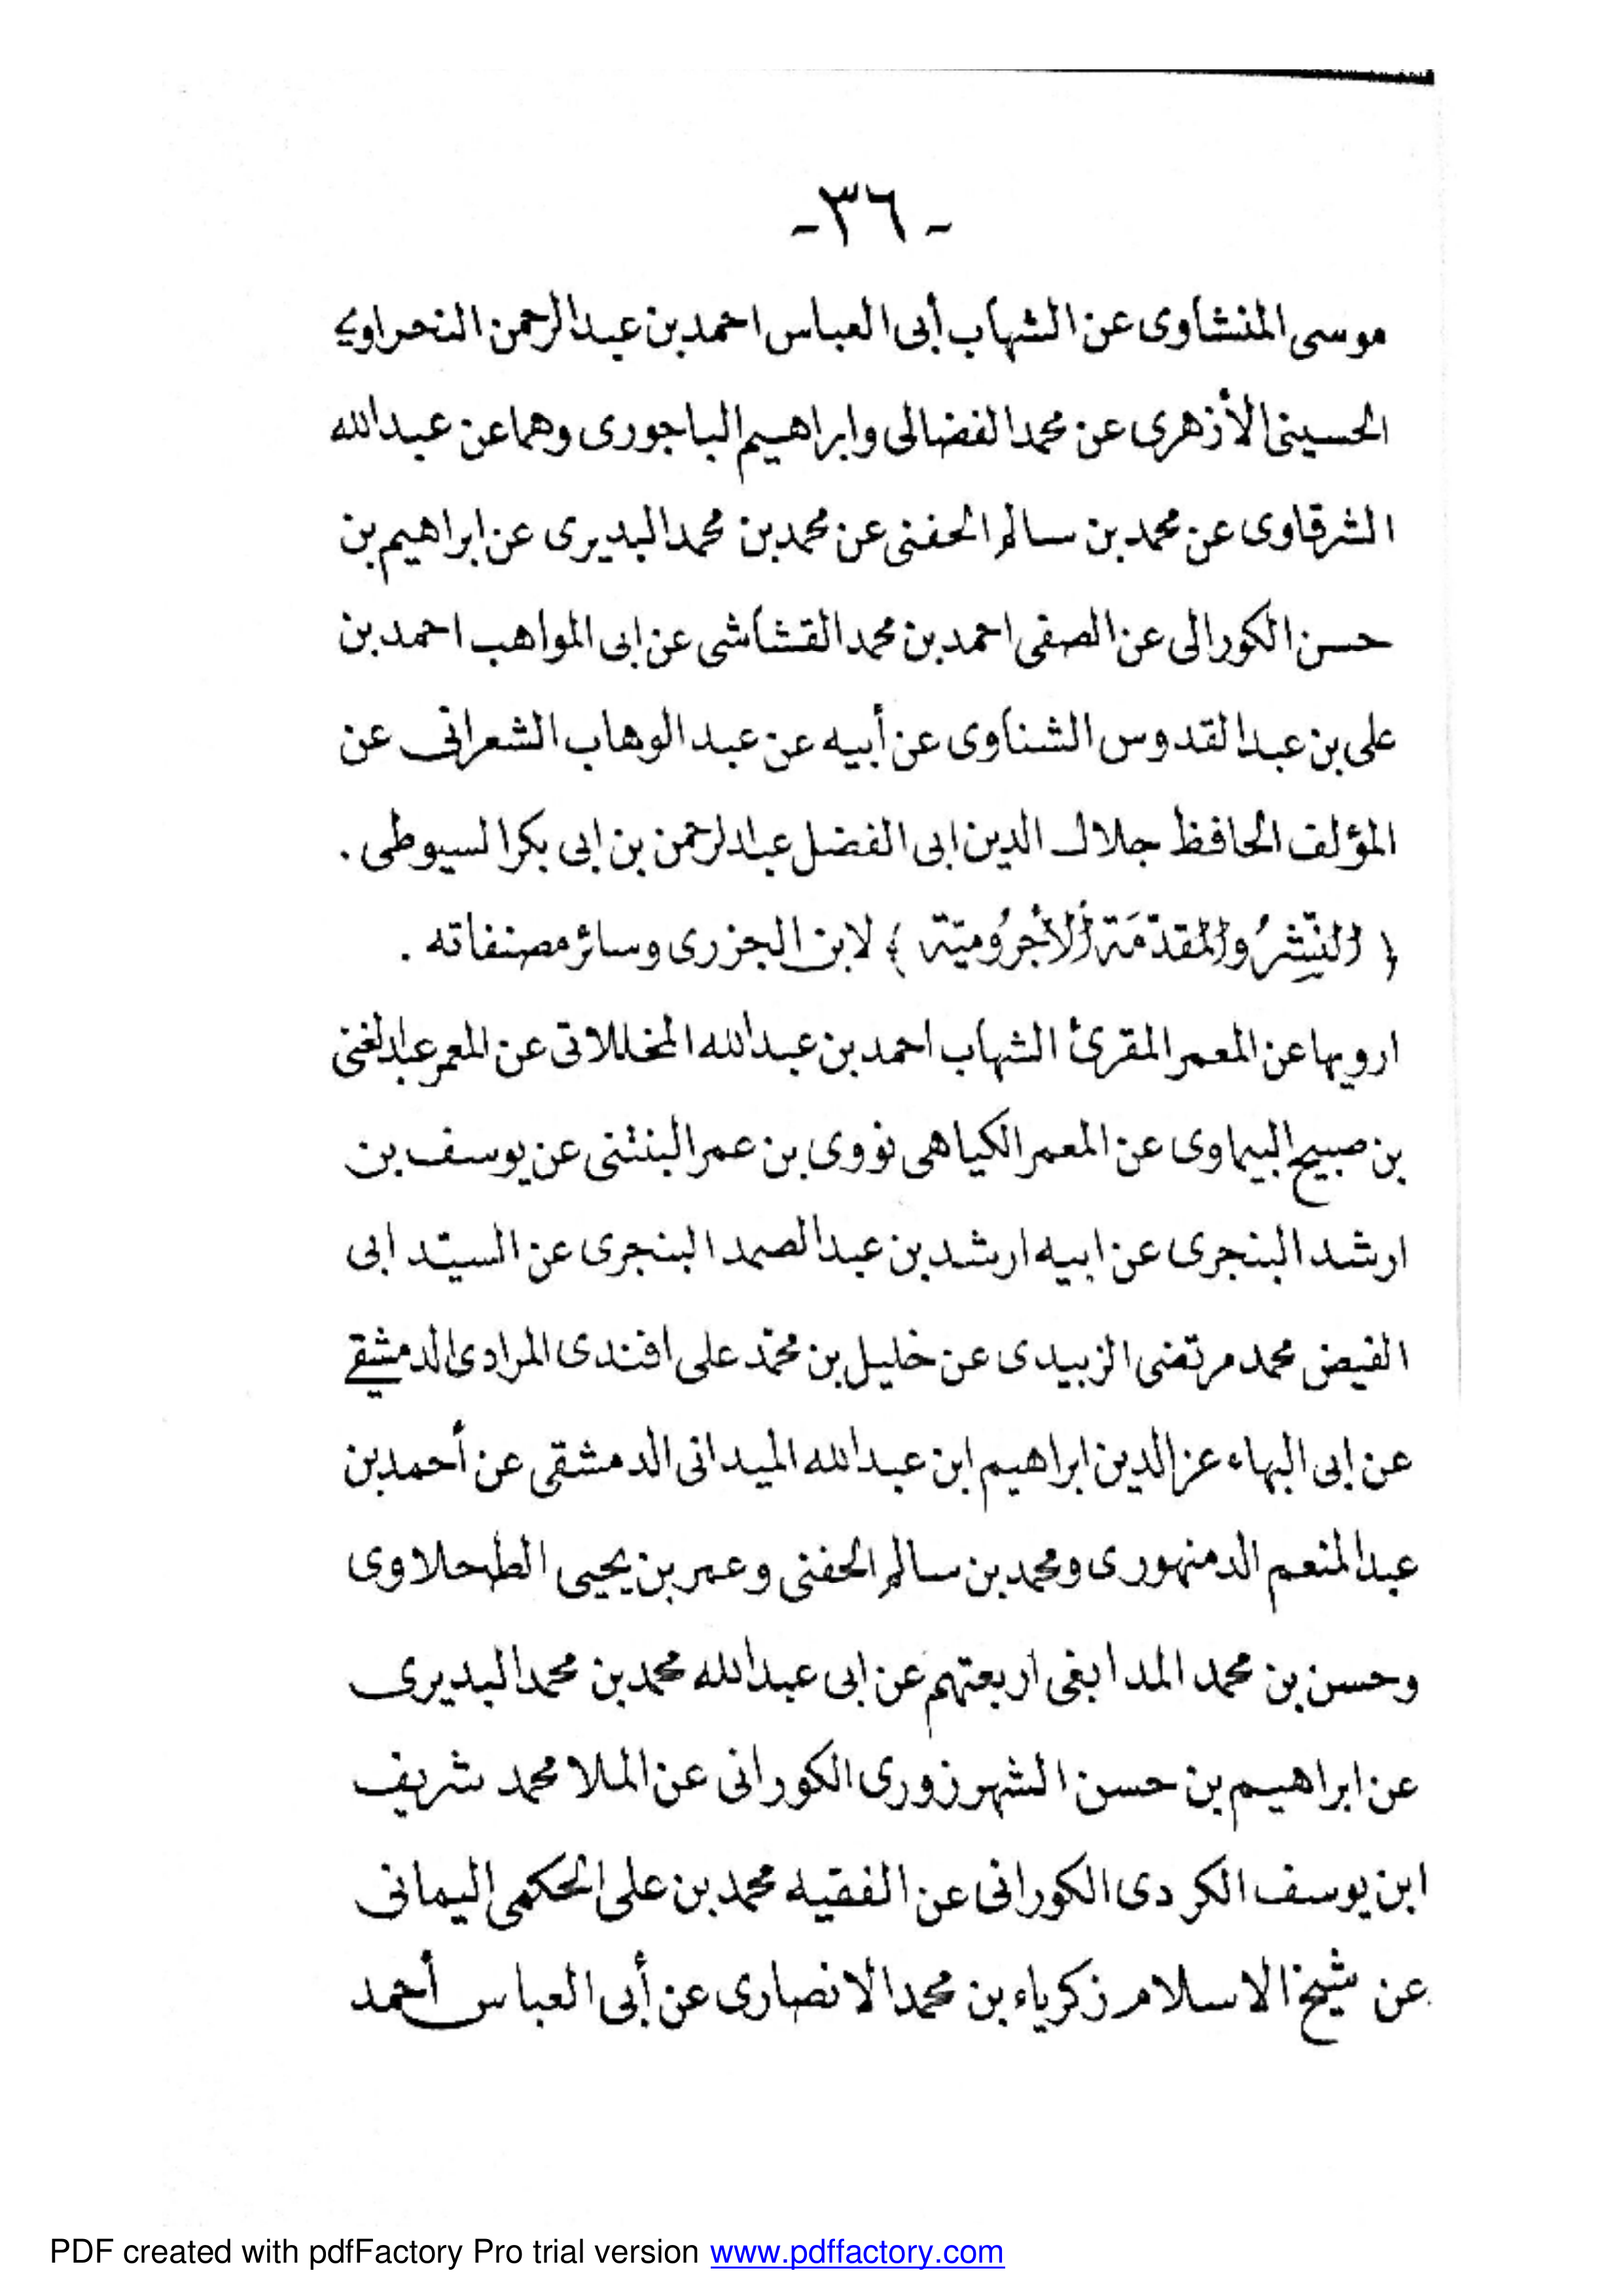 - ٣٦ -
موسى المنشاوى عن الشهاب أبى العباس احمد بن عبد الرحمن النحراوي
الحسينى الأزهرى عن محمد الفضالى وابراهيم الباجورى وهما عن عبد الله
الشرقاوى عن محمد بن سالم الحفنى عن محمد بن محمد البديرى عن ابراهيم بن
حسن الكورالى عن الصفى احمد بن محمد القشاشى عن ابى المواهب احمد بن
على بن عبد القدوس الشناوى عن أبيه عن عبد الوهاب الشعرانى عن
المؤلف الحافظ جلال الدين ابى الفضل عبد الرحمن بن ابى بكر السيوطى .
﴿ النَّشِرُ والمقدّمَة الأَجُرُوميّة ﴾ لابن الجزرى وسائر مصنفاته .
ارويها عن المعمر المقرئ الشهاب احمد بن عبد الله المخللاتى عن المعمر عبد الغنى
بن صبيح البيماوى عن المعمر الكياهى نووى بن عمر البنتنى عن يوسف بن
ارشد البنجرى عن ابيه ارشد بن عبد الصمد البنجرى عن السيّد ابى
الفيض محمد مرتضى الزبيدى عن خليل بن محمّد على افندى المرادى الدمشقي
عن ابى البهاء عز الدين ابراهيم ابن عبد الله الميدانى الدمشقى عن أحمد بن
عبد المنعم الدمنهورى ومحمد بن سالم الحفنى وعمر بن يحيى الطحلاوى
وحسن بن محمد المدابغى اربعتهم عن ابى عبد الله محمد بن محمد البديرى
عن ابراهيم بن حسن الشهرزورى الكورانى عن الملا محمد شريف
ابن يوسف الكردى الكورانى عن الفقيه محمد بن على الحكمى اليمانى
عن شيخ الاسلام زكرياء بن محمد الانصارى عن أبى العباس أحمد
PDF created with pdfFactory Pro trial version www.pdffactory.com